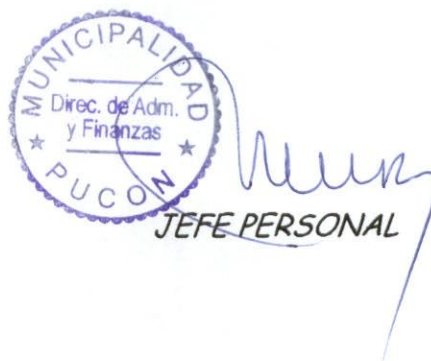 MUNICIPALIDAD
Direc. de Adm.
y Finanzas
PUCON
JEFE PERSONAL